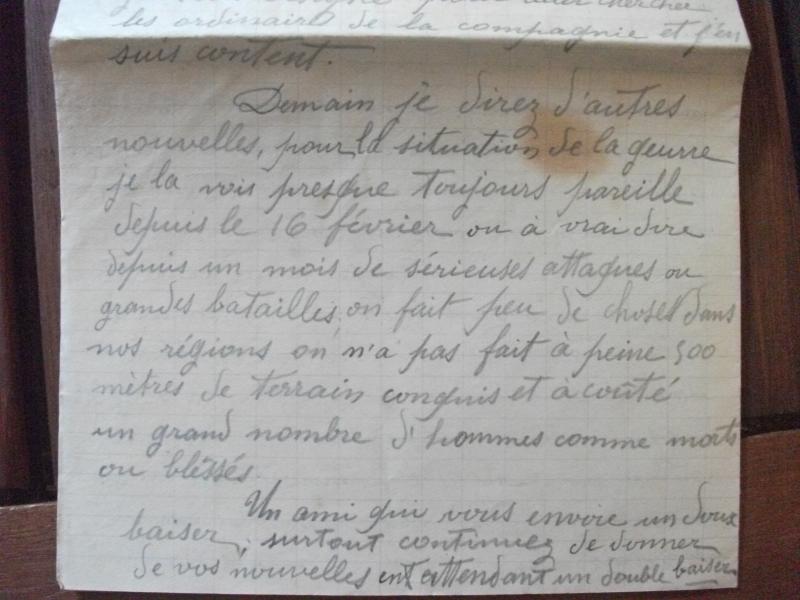 les ordinaires de la compagnie et j'en
suis content.
Demain je direz d'autres
nouvelles, pour la situation de la geurre
je la vois presque toujours pareille
depuis le 16 février ou à vrai dire
depuis un mois de sérieuses attaques ou
grandes batailles, on fait peu de choses dans
nos régions on n'a pas fait à peine 500
mètres de terrain conquis et à couté
un grand nombre d'hommes comme morts
ou bléssés.
Un ami qui vous envoie un doux
baiser, surtout continuez de donner
de vos nouvelles en attendant un double baiser